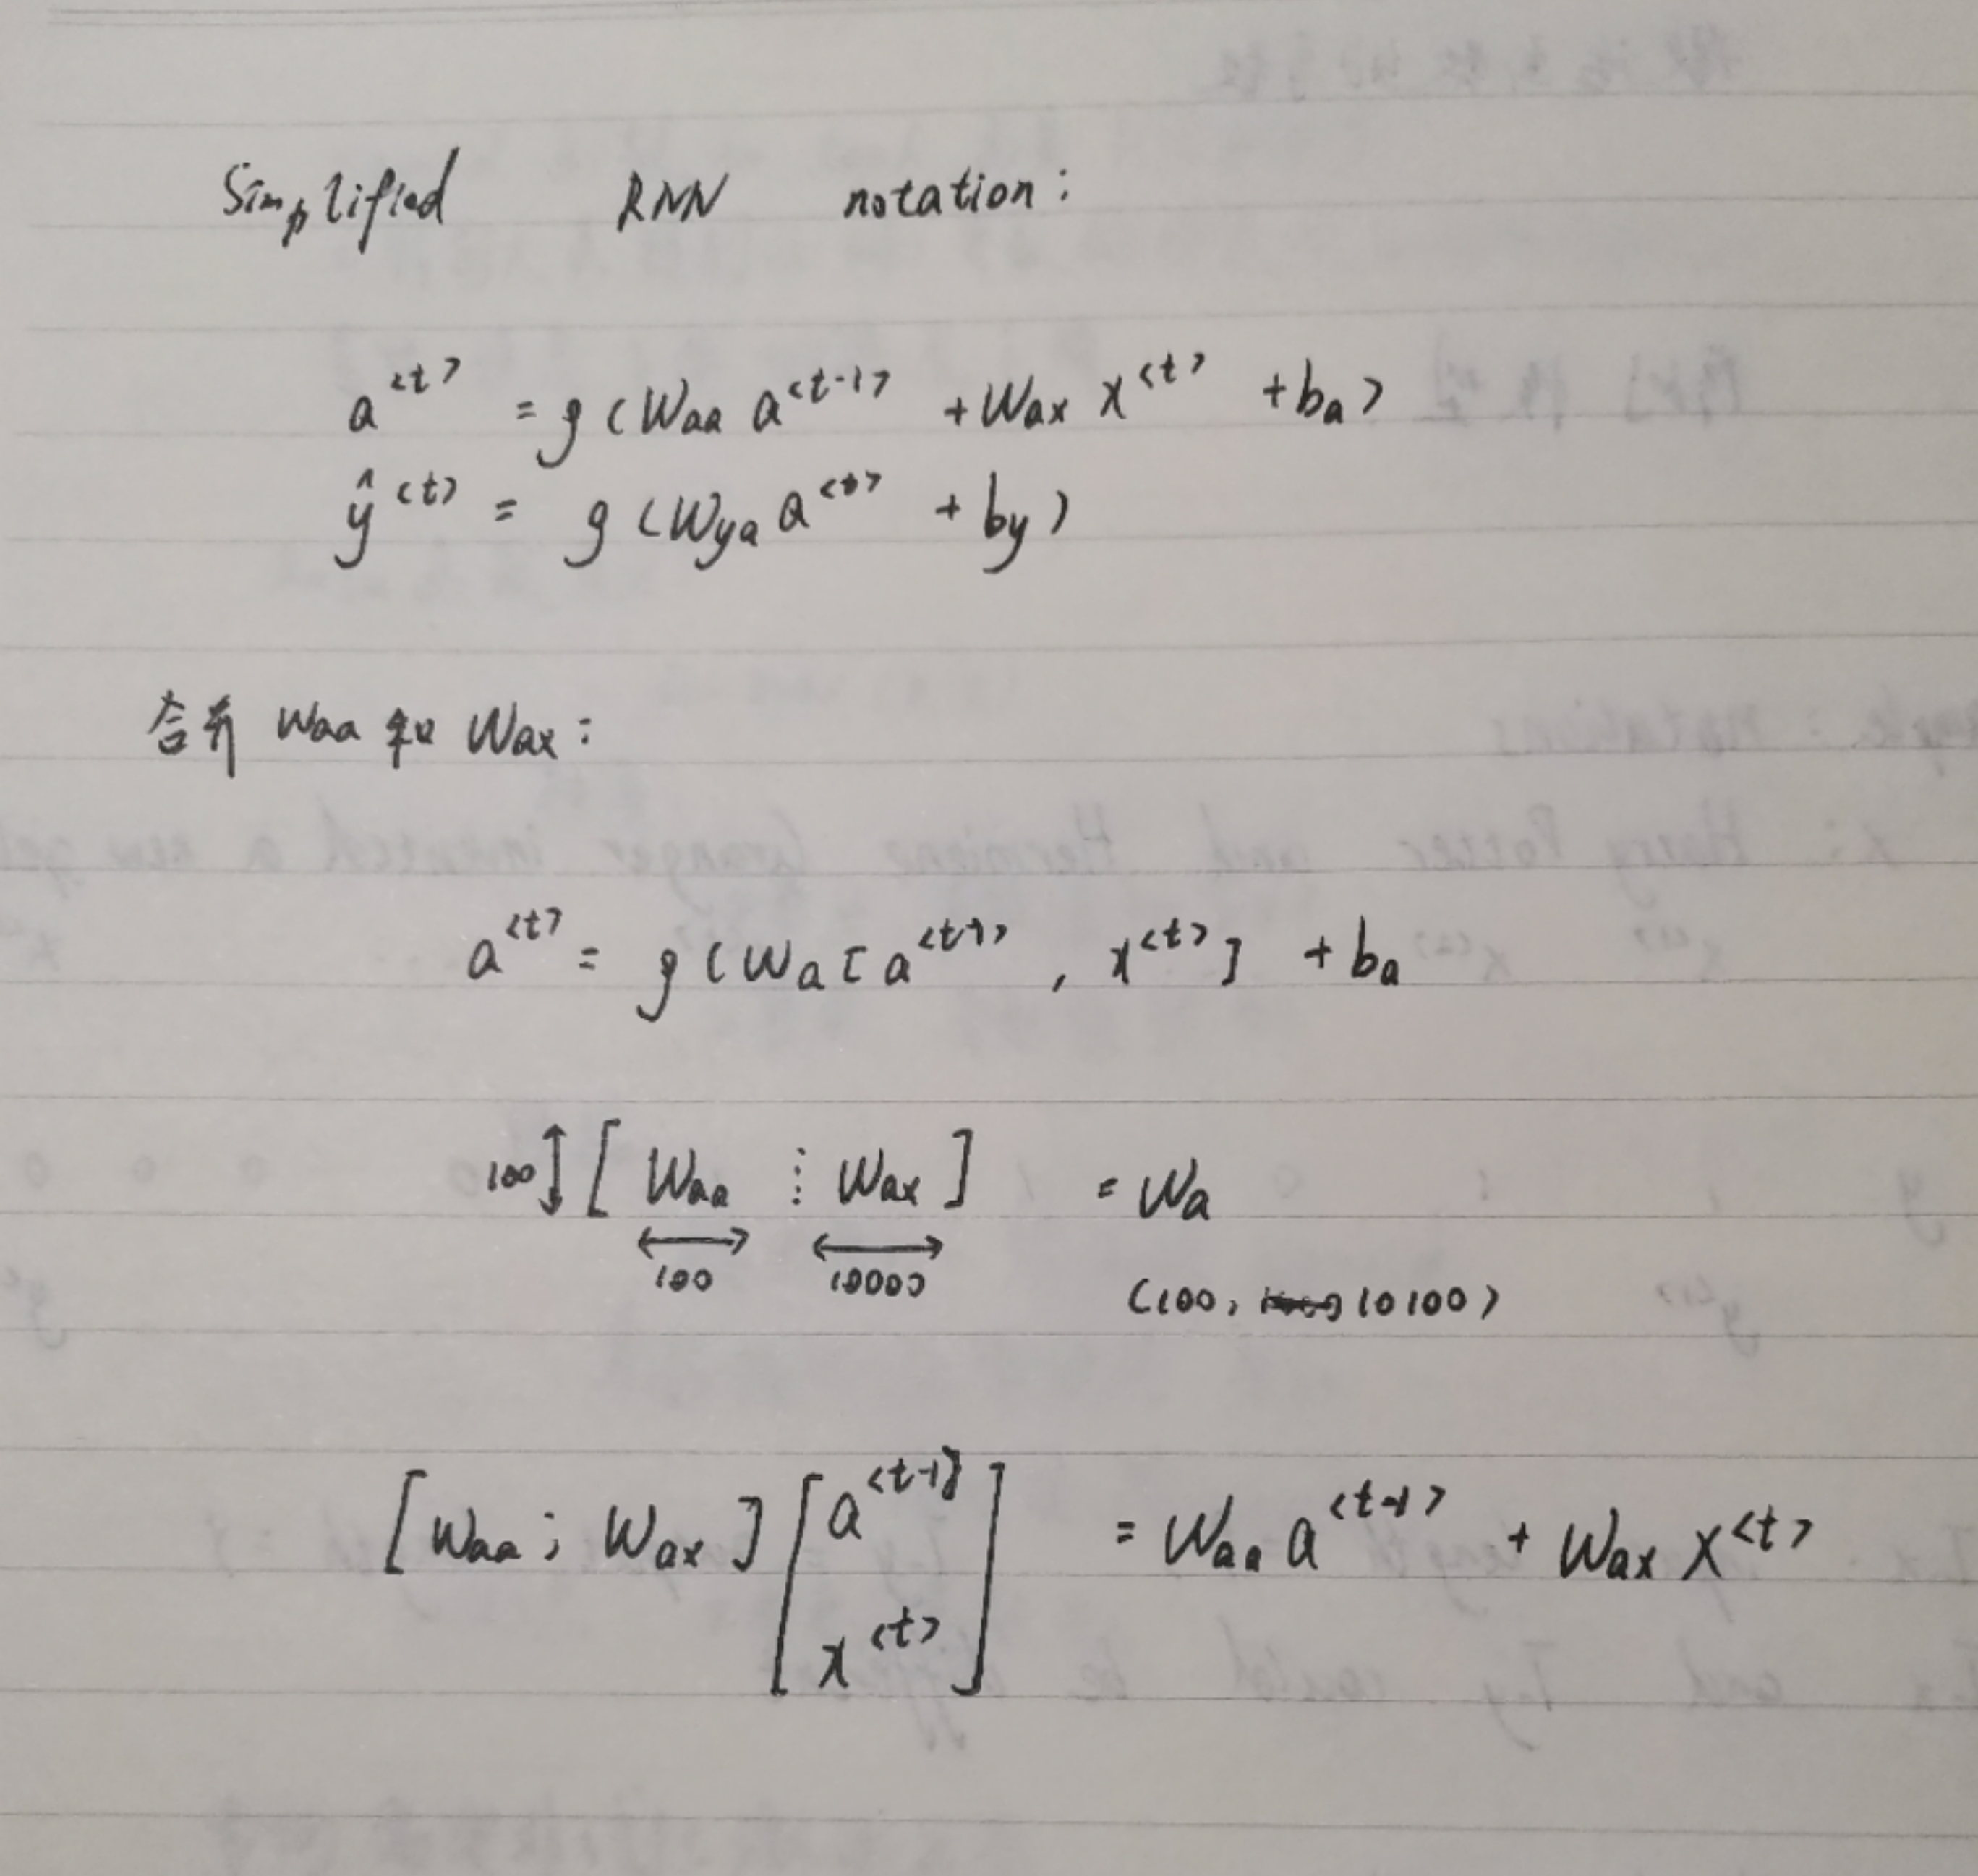 Simplified RNN notation:
a^{<t>} = g(Waa a^{<t-1>} + Wax x^{<t>} + ba)
ŷ^{<t>} = g(Wya a^{<t>} + by)
合并 Waa 和 Wax:
a^{<t>} = g(Wa[a^{<t-1>}, x^{<t>}] + ba
100↕ [Waa ⋮ Wax] = Wa
100 10000 (100, 10100)
[Waa ; Wax] [a^{<t-1>} x^{<t>}] = Waa a^{<t-1>} + Wax x^{<t>}